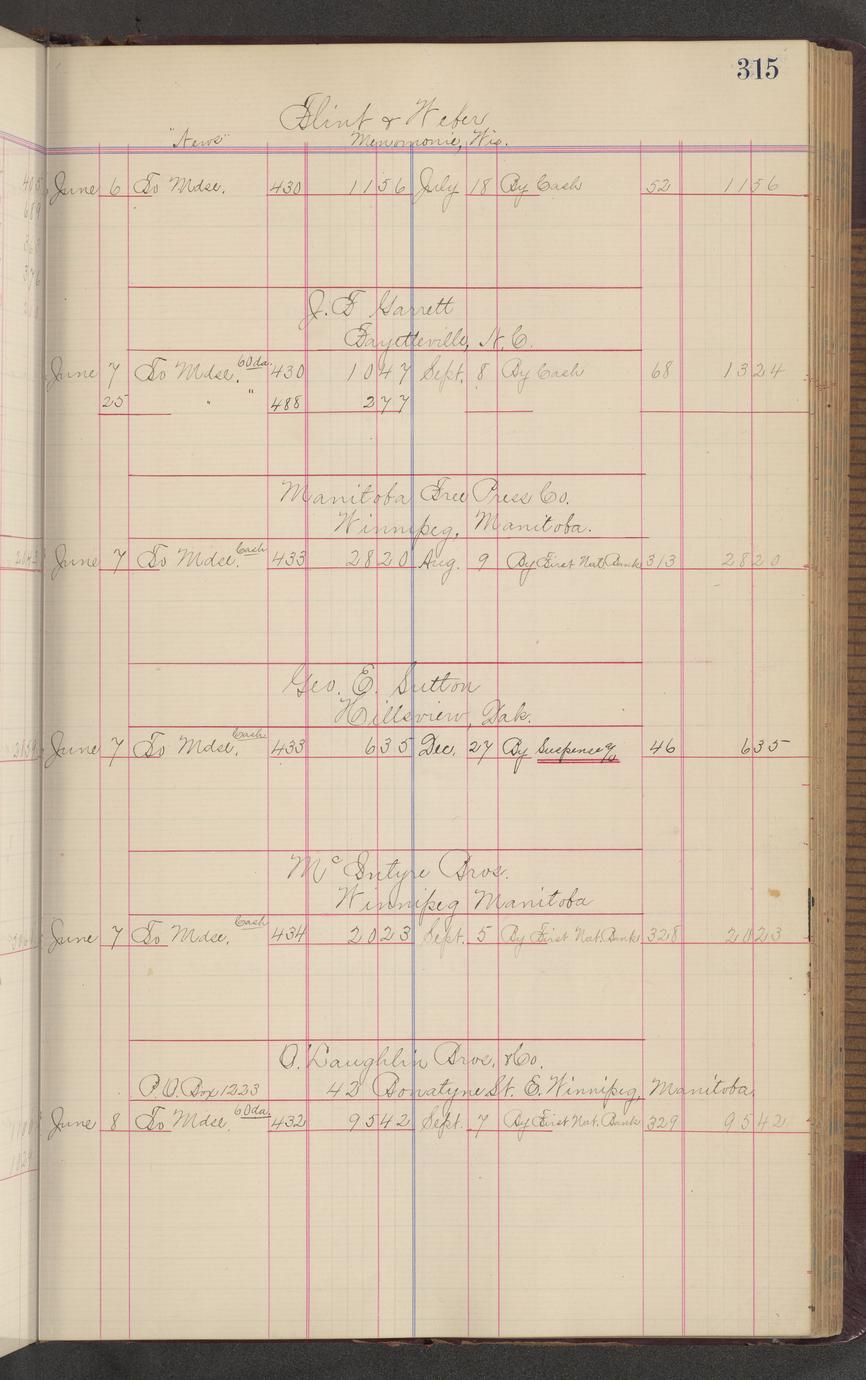 315
Flint & Weber
"News" Menomonie, Wis.
June 6 To Mdse. 430 11 56 July 18 By Cash 52 11 56
J. F Garrett
Fayetteville, N.C.
June 7 To Mdse. 60 da. 430 10 47 Sept. 8 By Cash 68 13 24
25 " " 488 2 77
Manitoba Free Press Co.
Winnipeg, Manitoba.
June 7 To Mdse. Cash 433 28 20 Aug. 9 By First Nat. Bank 313 28 20
Geo. E. Sutton
Hillsview, Dak.
June 7 To Mdse. Cash 433 6 35 Dec. 27 By Suspense a/c 46 6 35
Mc Intyre Bros.
Winnipeg Manitoba
June 7 To Mdse. Cash 434 20 23 Sept. 5 By First Nat. Bank 328 20 23
O'Laughlin Bros. & Co.
P.O. Box 1223 42 Bonatyne St. E. Winnipeg, Manitoba.
June 8 To Mdse. 60 da. 432 95 42 Sept. 7 By First Nat. Bank 329 95 42